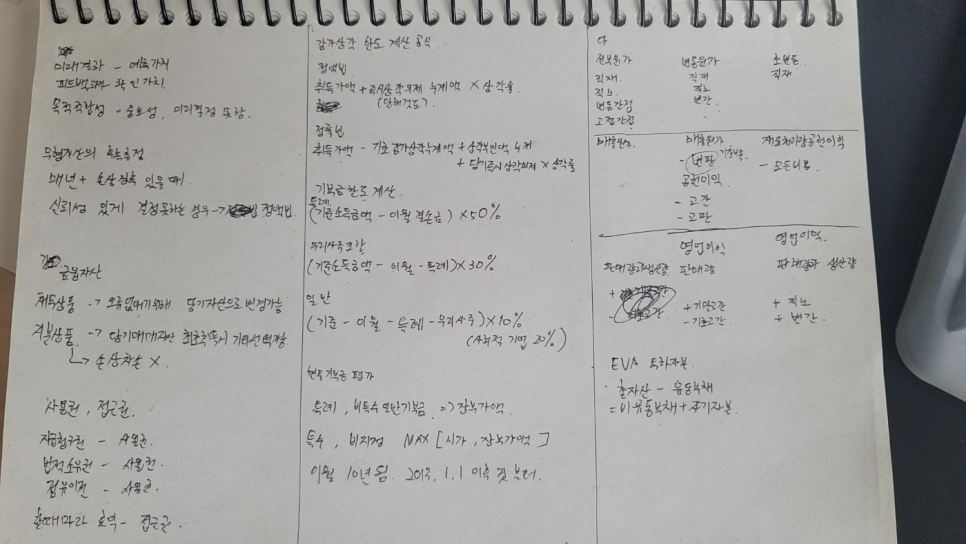 미래결과 - 예측가치
피드백효과 확인가치.
목적적합성 - 중요성, 미리결정 못함.
무형자산의 후속측정
매년 + 손상징후 있을때.
신뢰성 있게 결정못하는 경우 -> 정액법.
금융자산
채무상품 -> 당기자산으로 변경가능
지분상품. -> 당기매매자산 최초측정시 기타선택가능.
-> 손상차손 X.
사용권, 접근권.
지급청구권 - 사용권.
법적소유권 - 사용권.
점유이전 - 사용권.
할때마다 용역 - 접근권.
감가상각 한도 계산 공식.
정액법.
취득가액 + 즉시상각의제 누계액 X 상각률
(당해 포함)
정률법
취득가액 - 기초감가상각누계액 + 상각부인액 누계
+ 당기즉시상각의제 X 상각률
기부금한도 계산.
특례
(기준소득금액 - 이월결손금) X 50%
우리사주조합
(기준소득금액 - 이월 - 특례) X 30%
일반
(기준 - 이월 - 특례 - 우리사주) X 10%
(사회적 기업 20%)
현물기부금 평가
특례, 비특수일반기부금 => 장부가액.
특수, 비지정 MAX [시가, 장부가액]
이월 10년됨. 2013. 1. 1 이후 것 부터.
다
전부원가 변동원가 초변동.
직재. 직재 직재.
직노. 직노
변동간접 변간.
고정간접 -
매출원가. 매출원가 재료처리량공헌이익
- 변판
공헌이익.
- 고간
- 고판
영업이익 영업이익.
판매량과 생산량 판매량 판매량과 생산량
+ 기말고간 + 직노
- 기초고간 + 변간.
EVA 투하자본.
총자산 - 유동부채
= 비유동부채 + 자기자본.